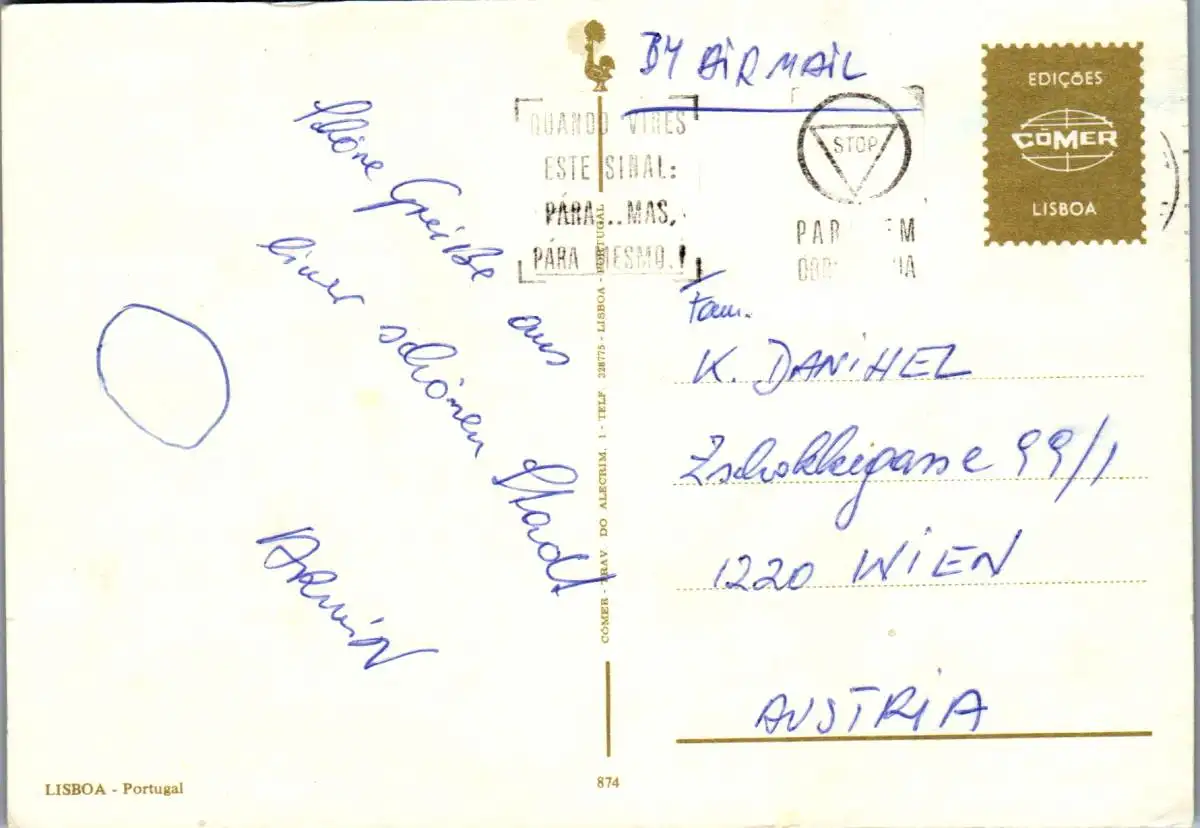 BY AIR MAIL
EDIÇÕES
CÓMER
LISBOA
QUANDO VIRES
ESTE SINAL:
PÁRA...MAS,
PÁRA MESMO.!
STOP
Schöne Grüße aus
einer schönen Stadt
Armin
Fam.
K. DANIHEL
Zschokkegasse 99/1
1220 WIEN
AUSTRIA
CÓMER - TRAV. DO ALECRIM, 1 - TELF. 328775 - LISBOA - PORTUGAL
LISBOA - Portugal
874